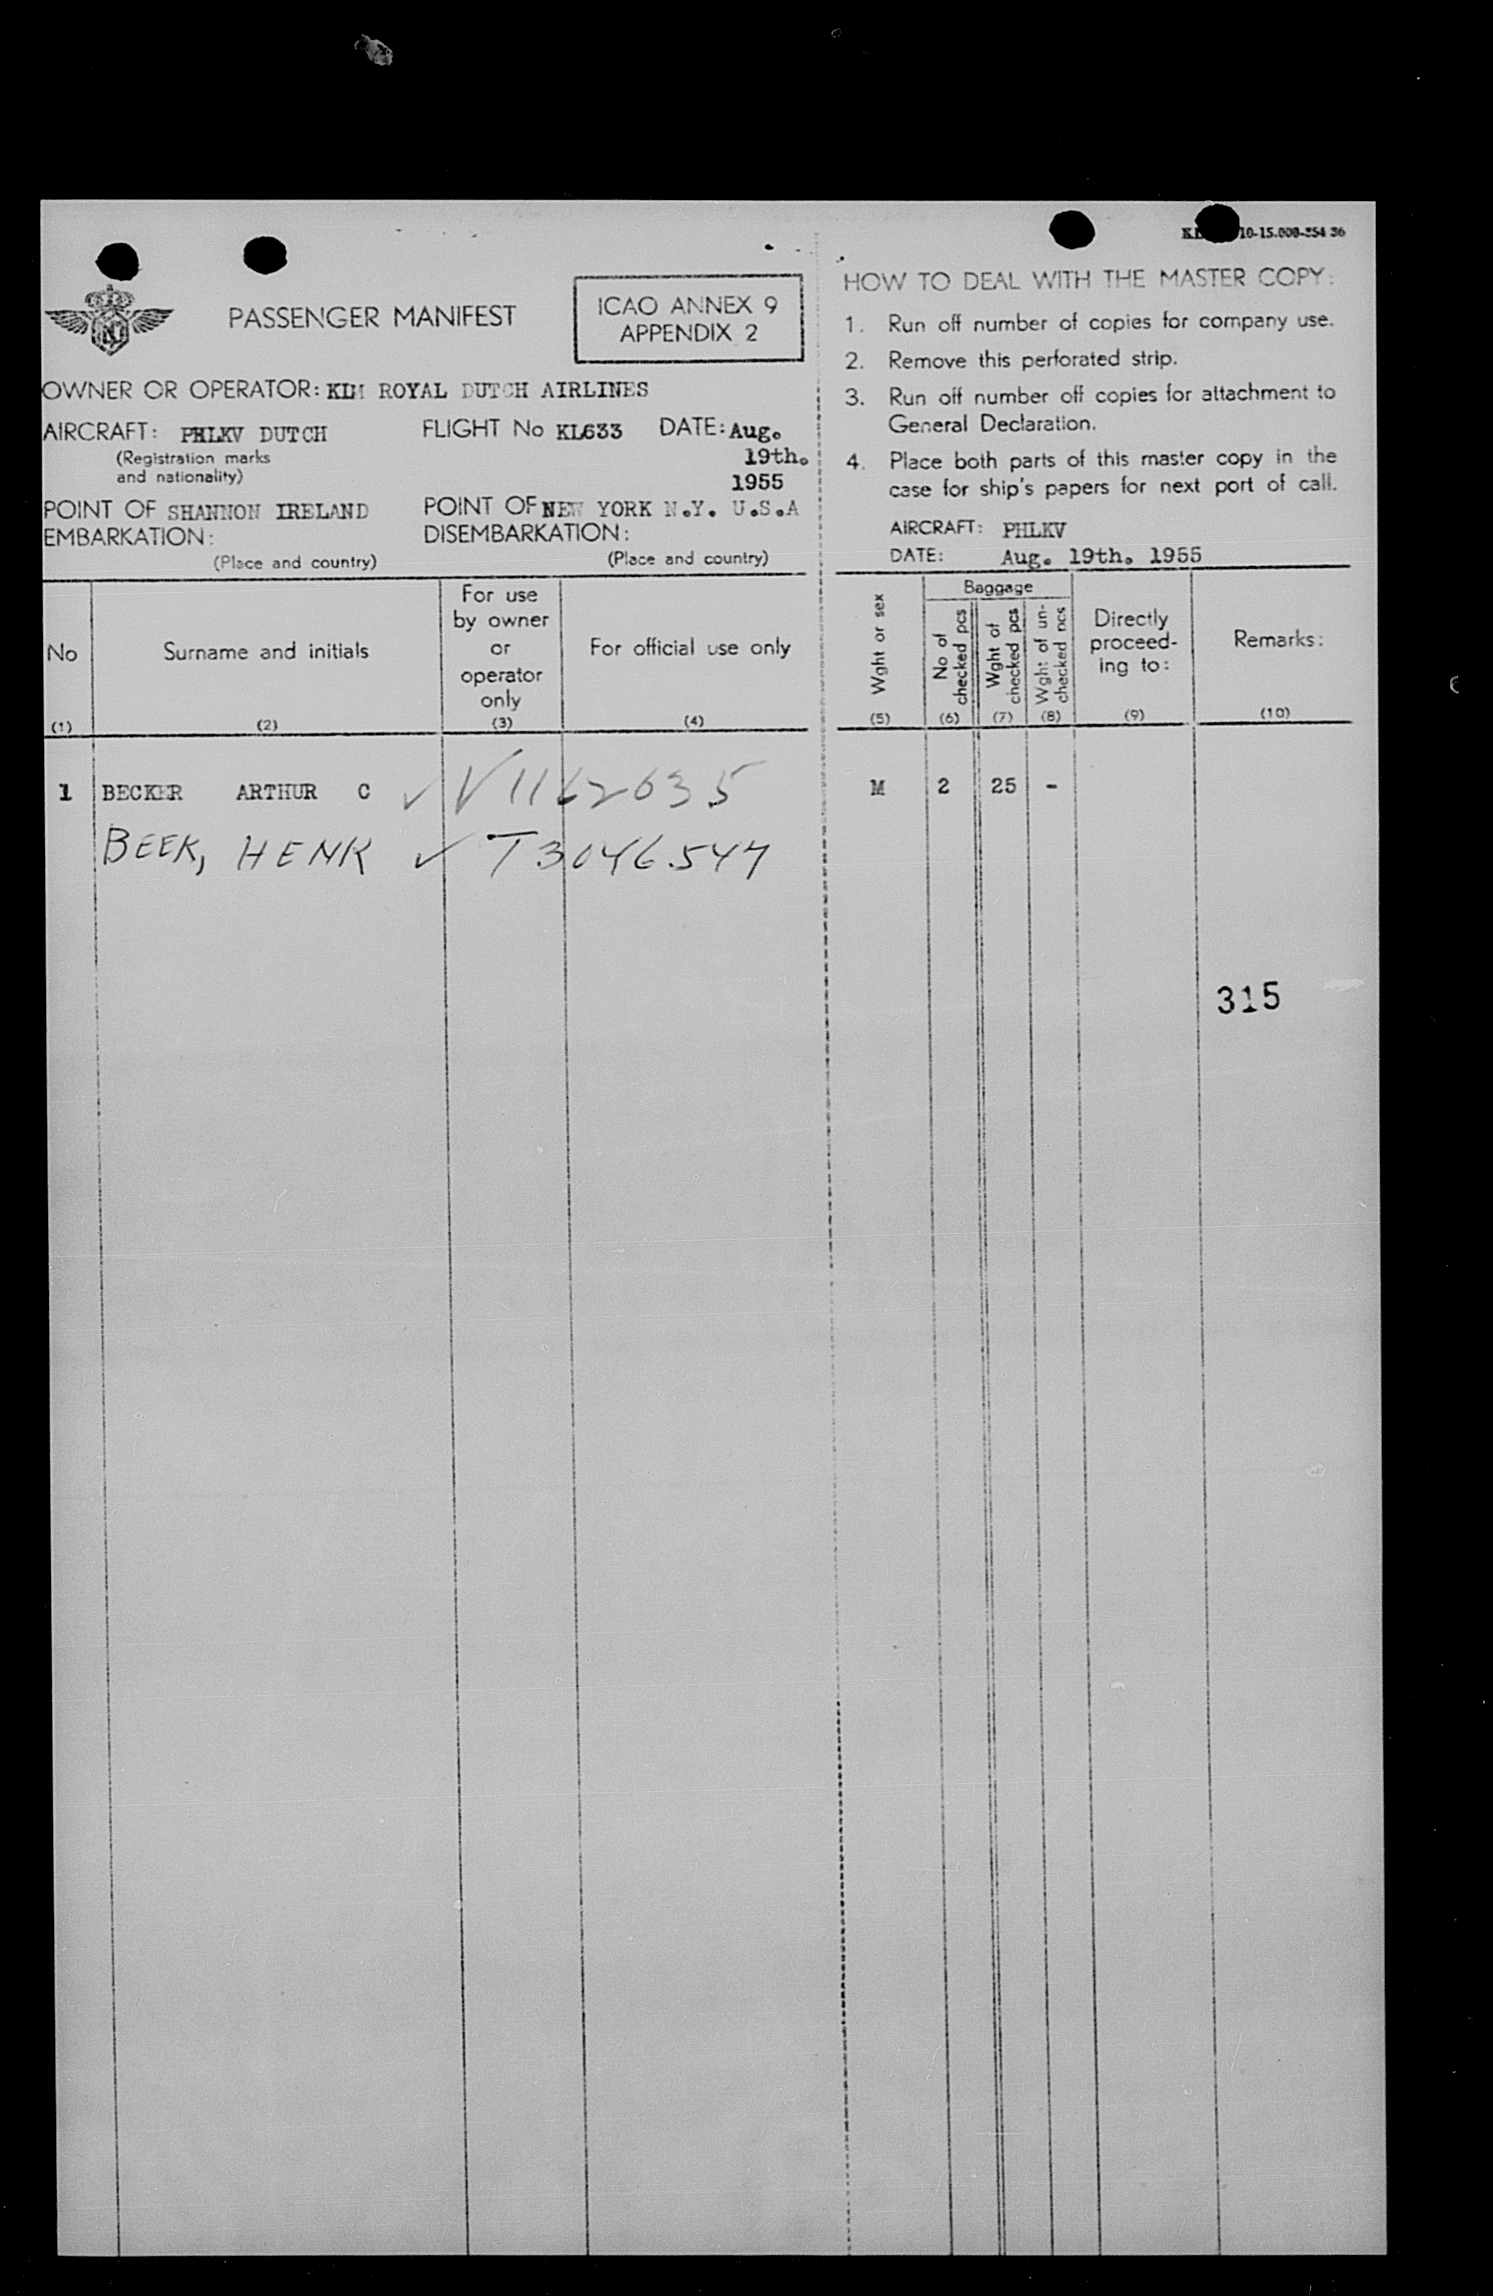 PASSENGER MANIFEST
ICAO ANNEX 9
APPENDIX 2
OWNER OR OPERATOR: KLM ROYAL DUTCH AIRLINES
AIRCRAFT: PHLKV DUTCH FLIGHT No KL633 DATE: Aug.
(Registration marks 19th.
and nationality) 1955
POINT OF SHANNON IRELAND POINT OF NEW YORK N.Y. U.S.A
EMBARKATION: DISEMBARKATION:
(Place and country) (Place and country)
No
(1)
Surname and initials
(2)
For use
by owner
or
operator
only
(3)
For official use only
(4)
1 BECKER ARTHUR C ✓ V1162635
BEEK, HENK ✓ T3046547
10-15.000-254 36
HOW TO DEAL WITH THE MASTER COPY:
1. Run off number of copies for company use.
2. Remove this perforated strip.
3. Run off number off copies for attachment to
General Declaration.
4. Place both parts of this master copy in the
case for ship's papers for next port of call.
AIRCRAFT: PHLKV
DATE: Aug. 19th. 1955
Wght or sex
(5)
Baggage
No of
checked pcs
(6)
Wght of
checked pcs
(7)
Wght of un-
checked pcs
(8)
Directly
proceed-
ing to:
(9)
Remarks:
(10)
M 2 25 -
315